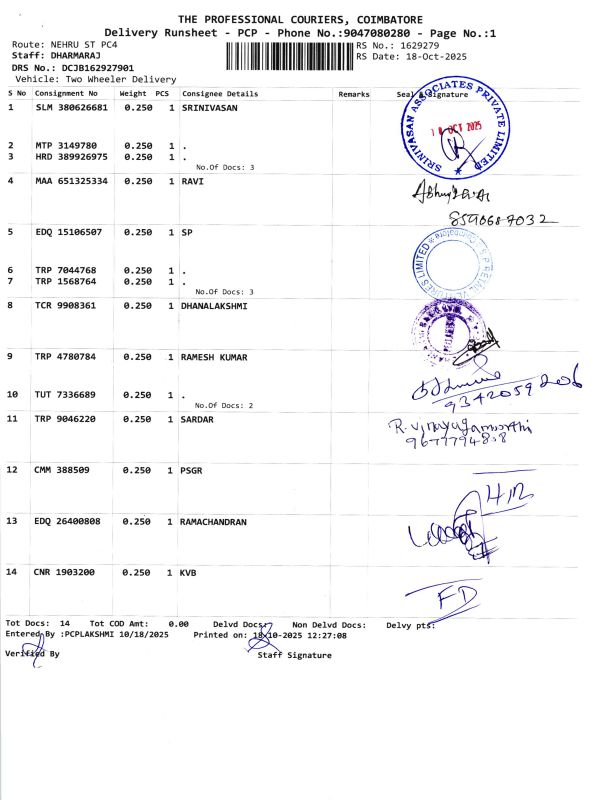 THE PROFESSIONAL COURIERS, COIMBATORE
Delivery Runsheet - PCP - Phone No.:9047080280 - Page No.:1
Route: NEHRU ST PC4 RS No.: 1629279
Staff: DHARMARAJ RS Date: 18-Oct-2025
DRS No.: DCJB162927901
Vehicle: Two Wheeler Delivery
S No Consignment No Weight PCS Consignee Details Remarks Seal & Signature
1 SLM 380626681 0.250 1 SRINIVASAN
SRINIVASAN ASSOCIATES PRIVATE LIMITED
18 OCT 2025
2 MTP 3149780 0.250 1 .
3 HRD 389926975 0.250 1 .
No.Of Docs: 3
4 MAA 651325334 0.250 1 RAVI
8590687032
5 EDQ 15106507 0.250 1 SP
6 TRP 7044768 0.250 1 .
7 TRP 1568764 0.250 1 .
No.Of Docs: 3
8 TCR 9908361 0.250 1 DHANALAKSHMI
9 TRP 4780784 0.250 1 RAMESH KUMAR
9342059206
10 TUT 7336689 0.250 1 .
No.Of Docs: 2
11 TRP 9046220 0.250 1 SARDAR
R. Vinayagamoorthi
9677794808
12 CMM 388509 0.250 1 PSGR
13 EDQ 26400808 0.250 1 RAMACHANDRAN
14 CNR 1903200 0.250 1 KVB
FD
Tot Docs: 14 Tot COD Amt: 0.00 Delvd Docs: Non Delvd Docs: Delvy pts:
Entered By :PCPLAKSHMI 10/18/2025 Printed on: 18-10-2025 12:27:08
Verified By Staff Signature